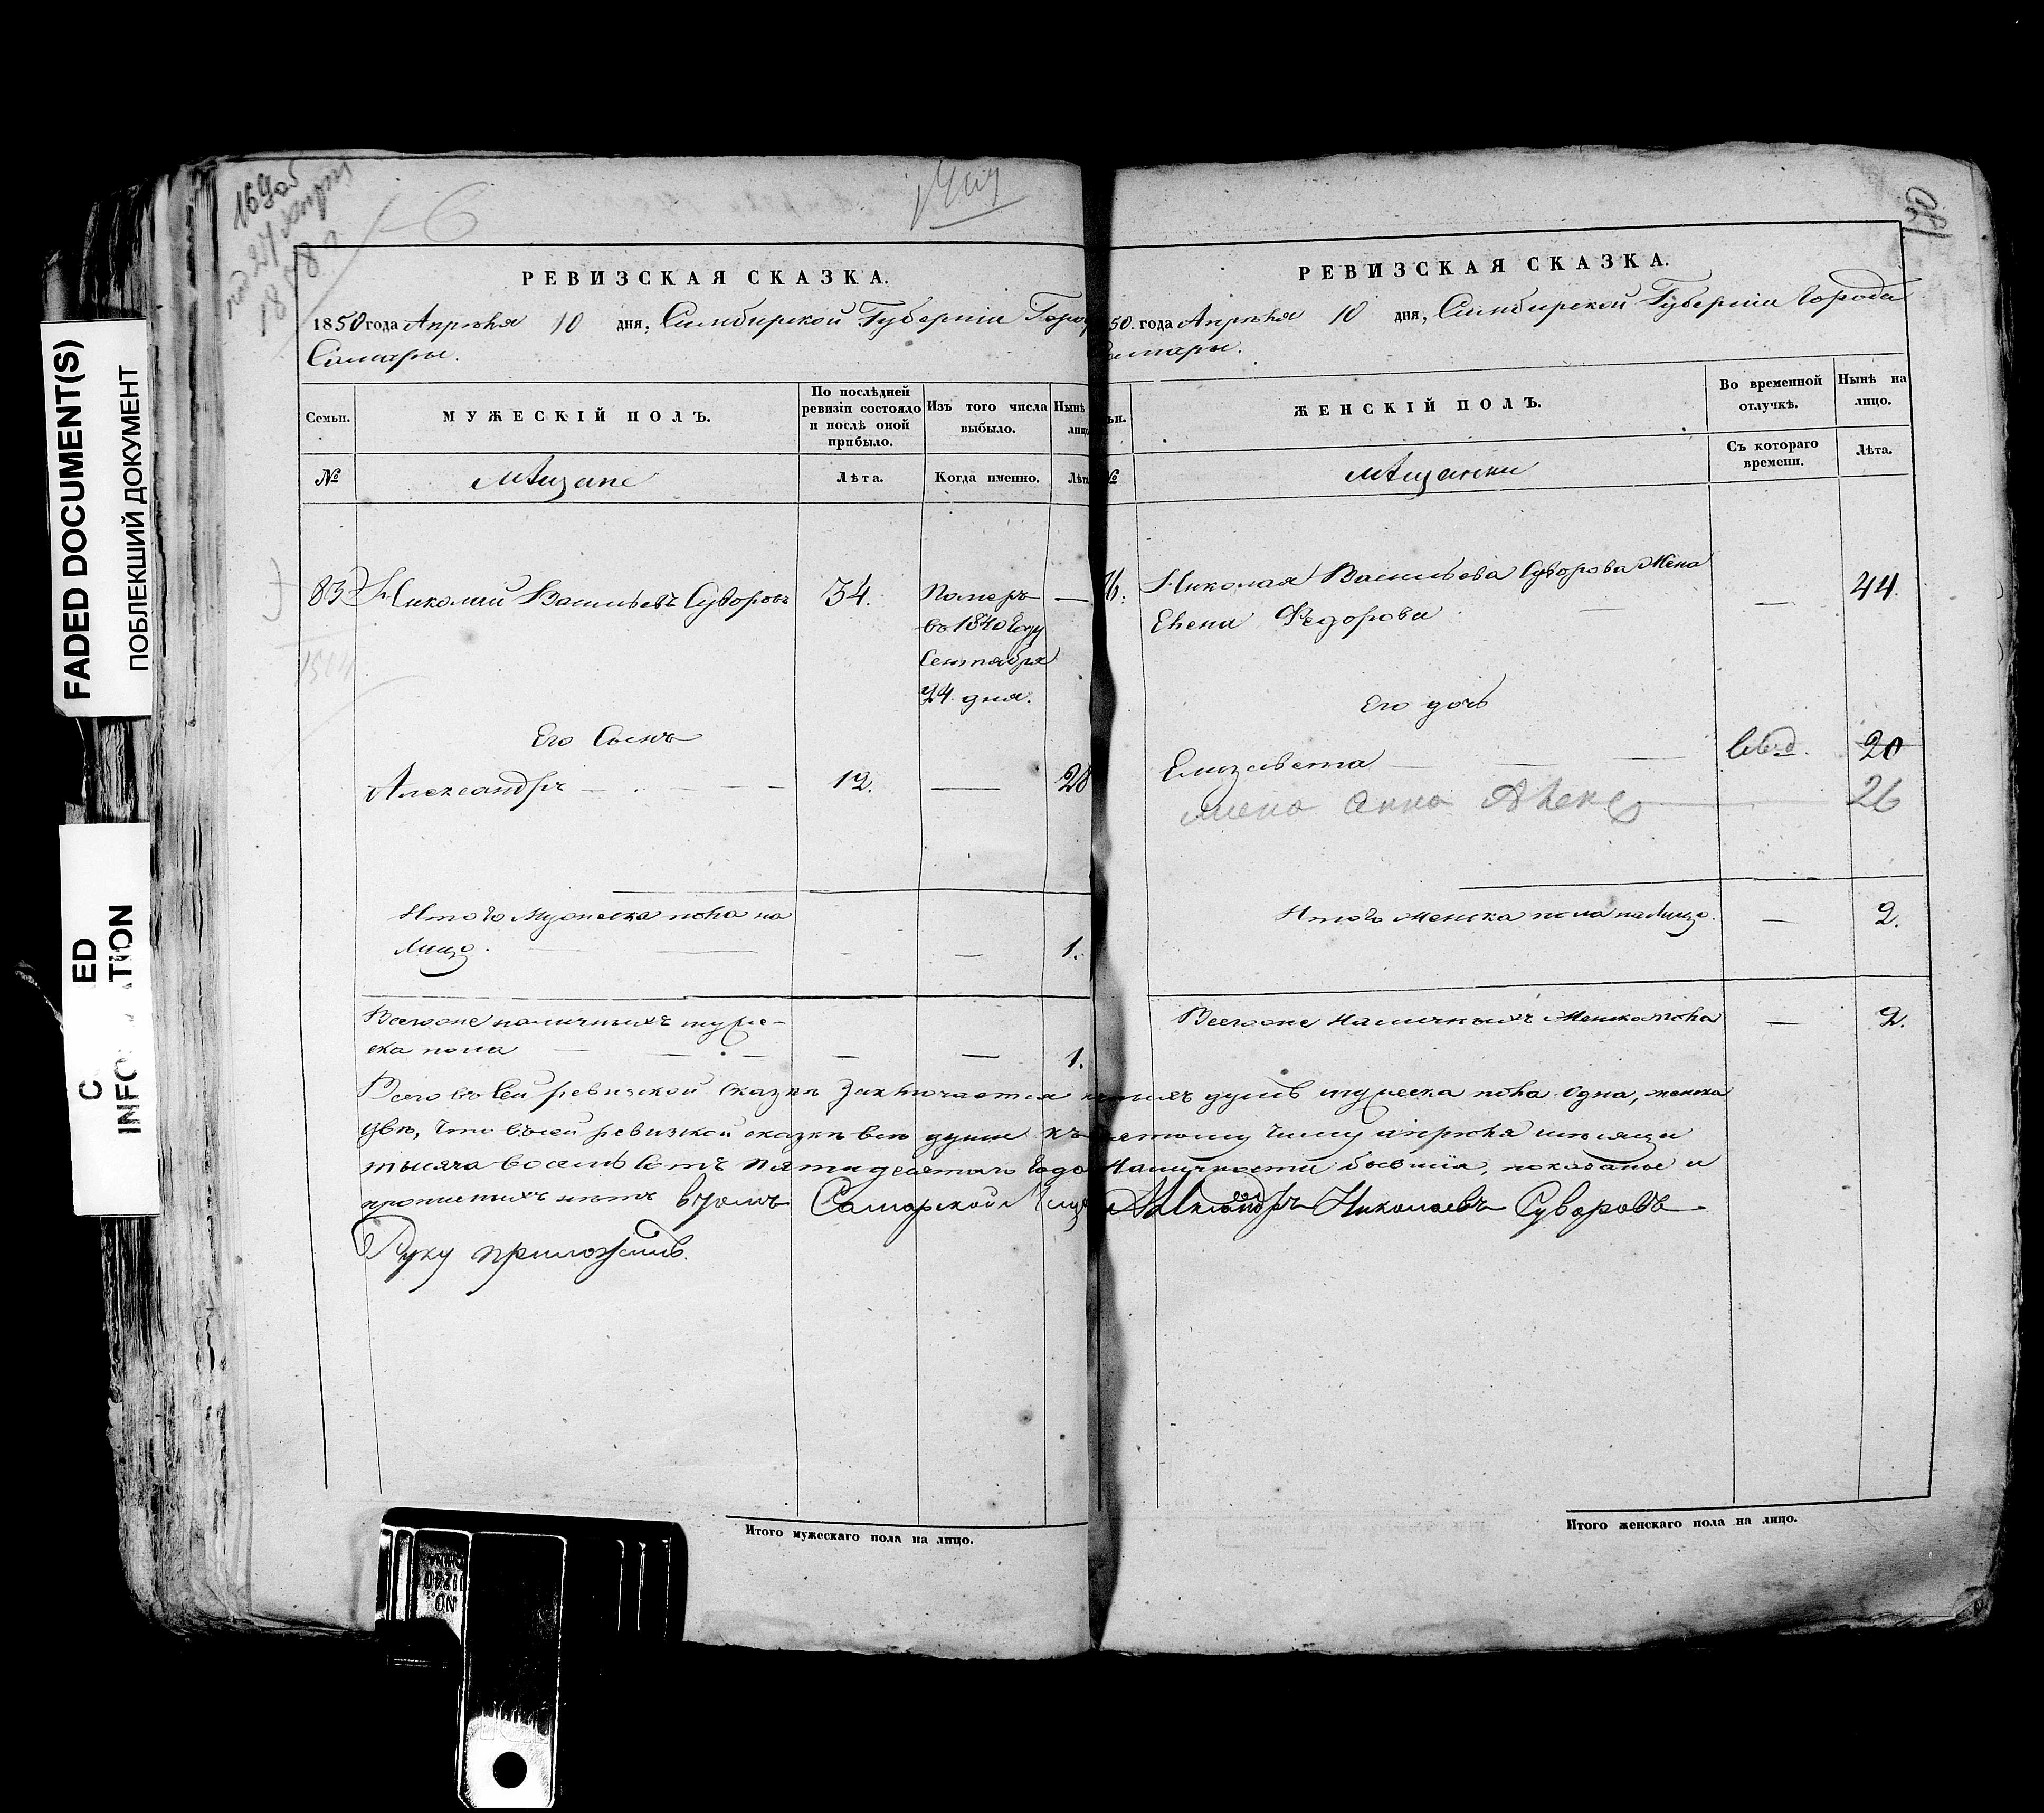 FADED DOCUMENT(S)
ПОБЛЕКШИЙ ДОКУМЕНТ
РЕВИЗСКАЯ СКАЗКА.
1850 года Апрѣля 10 дня, Симбирской Губерніи Горо
Самары.
Семьи.
МУЖЕСКІЙ ПОЛЪ.
По послѣдней ревизіи состояло и послѣ оной прибыло.
Изъ того числа выбыло.
Нынѣ лицо
№
Мѣщане
Лѣта.
Когда именно.
Лѣта
83
Николай Васильевъ Суворовъ
34.
Померъ
въ 1840 Году
Сентября
24 дня.
—
Его Сынъ
Александръ
12.
—
28
Итого Мужеска пола на
лицо.
1.
Всегоже наличныхъ муже-
ска пола
1.
РЕВИЗСКАЯ СКАЗКА.
50. года Апрѣля 10 дня, Симбирской Губерніи Города
амары.
ЖЕНСКІЙ ПОЛЪ.
Во временной отлучкѣ.
Нынѣ на лицо.
№
Мѣщанки
Съ котораго времени.
Лѣта.
Николая Васильева Суворова Жена
Елена Федорова
—
44.
Его дочь
Елизавета
20
жена Анна Алекс
26
Итого Женска пола налицо.
—
2.
Всегоже наличныхъ Женска пола
—
2.
Всего въ сей ревизской сказкѣ заключается душъ мужеска пола одна, женска
двѣ, Что въ сей ревизской сказкѣ всѣ души къ Числу апрѣля мѣсяца
тысяча восемь сотъ пятидесятаго Года наличности бывшія, показаны и
прописныхъ нѣтъ въ томъ Самарской Александръ Николаевъ Суворовъ
Руку приложилъ.
Итого мужескаго пола на лицо.
Итого женскаго пола на лицо.